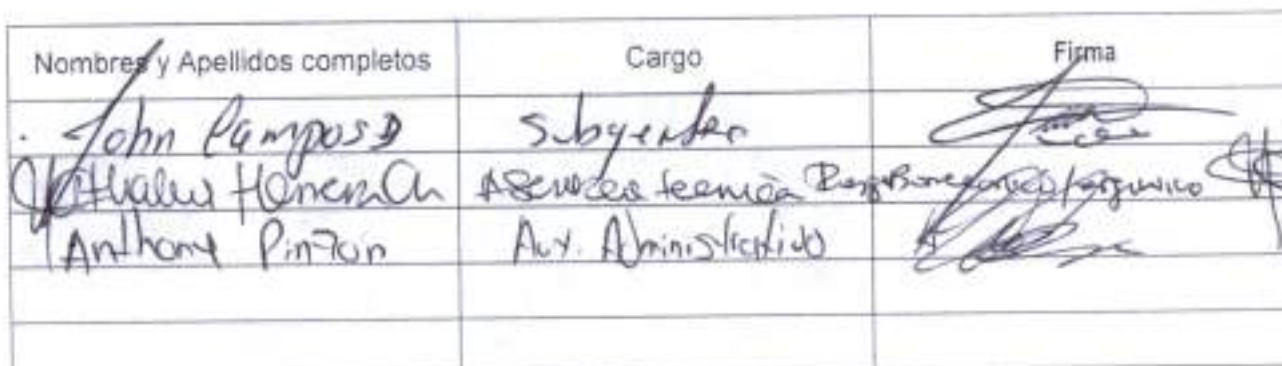 Nombres y Apellidos completos Cargo Firma
John Campos D Subgerente
Herrera Ch Asesora tecnica
Anthony Pinzon Aux. Administrativo